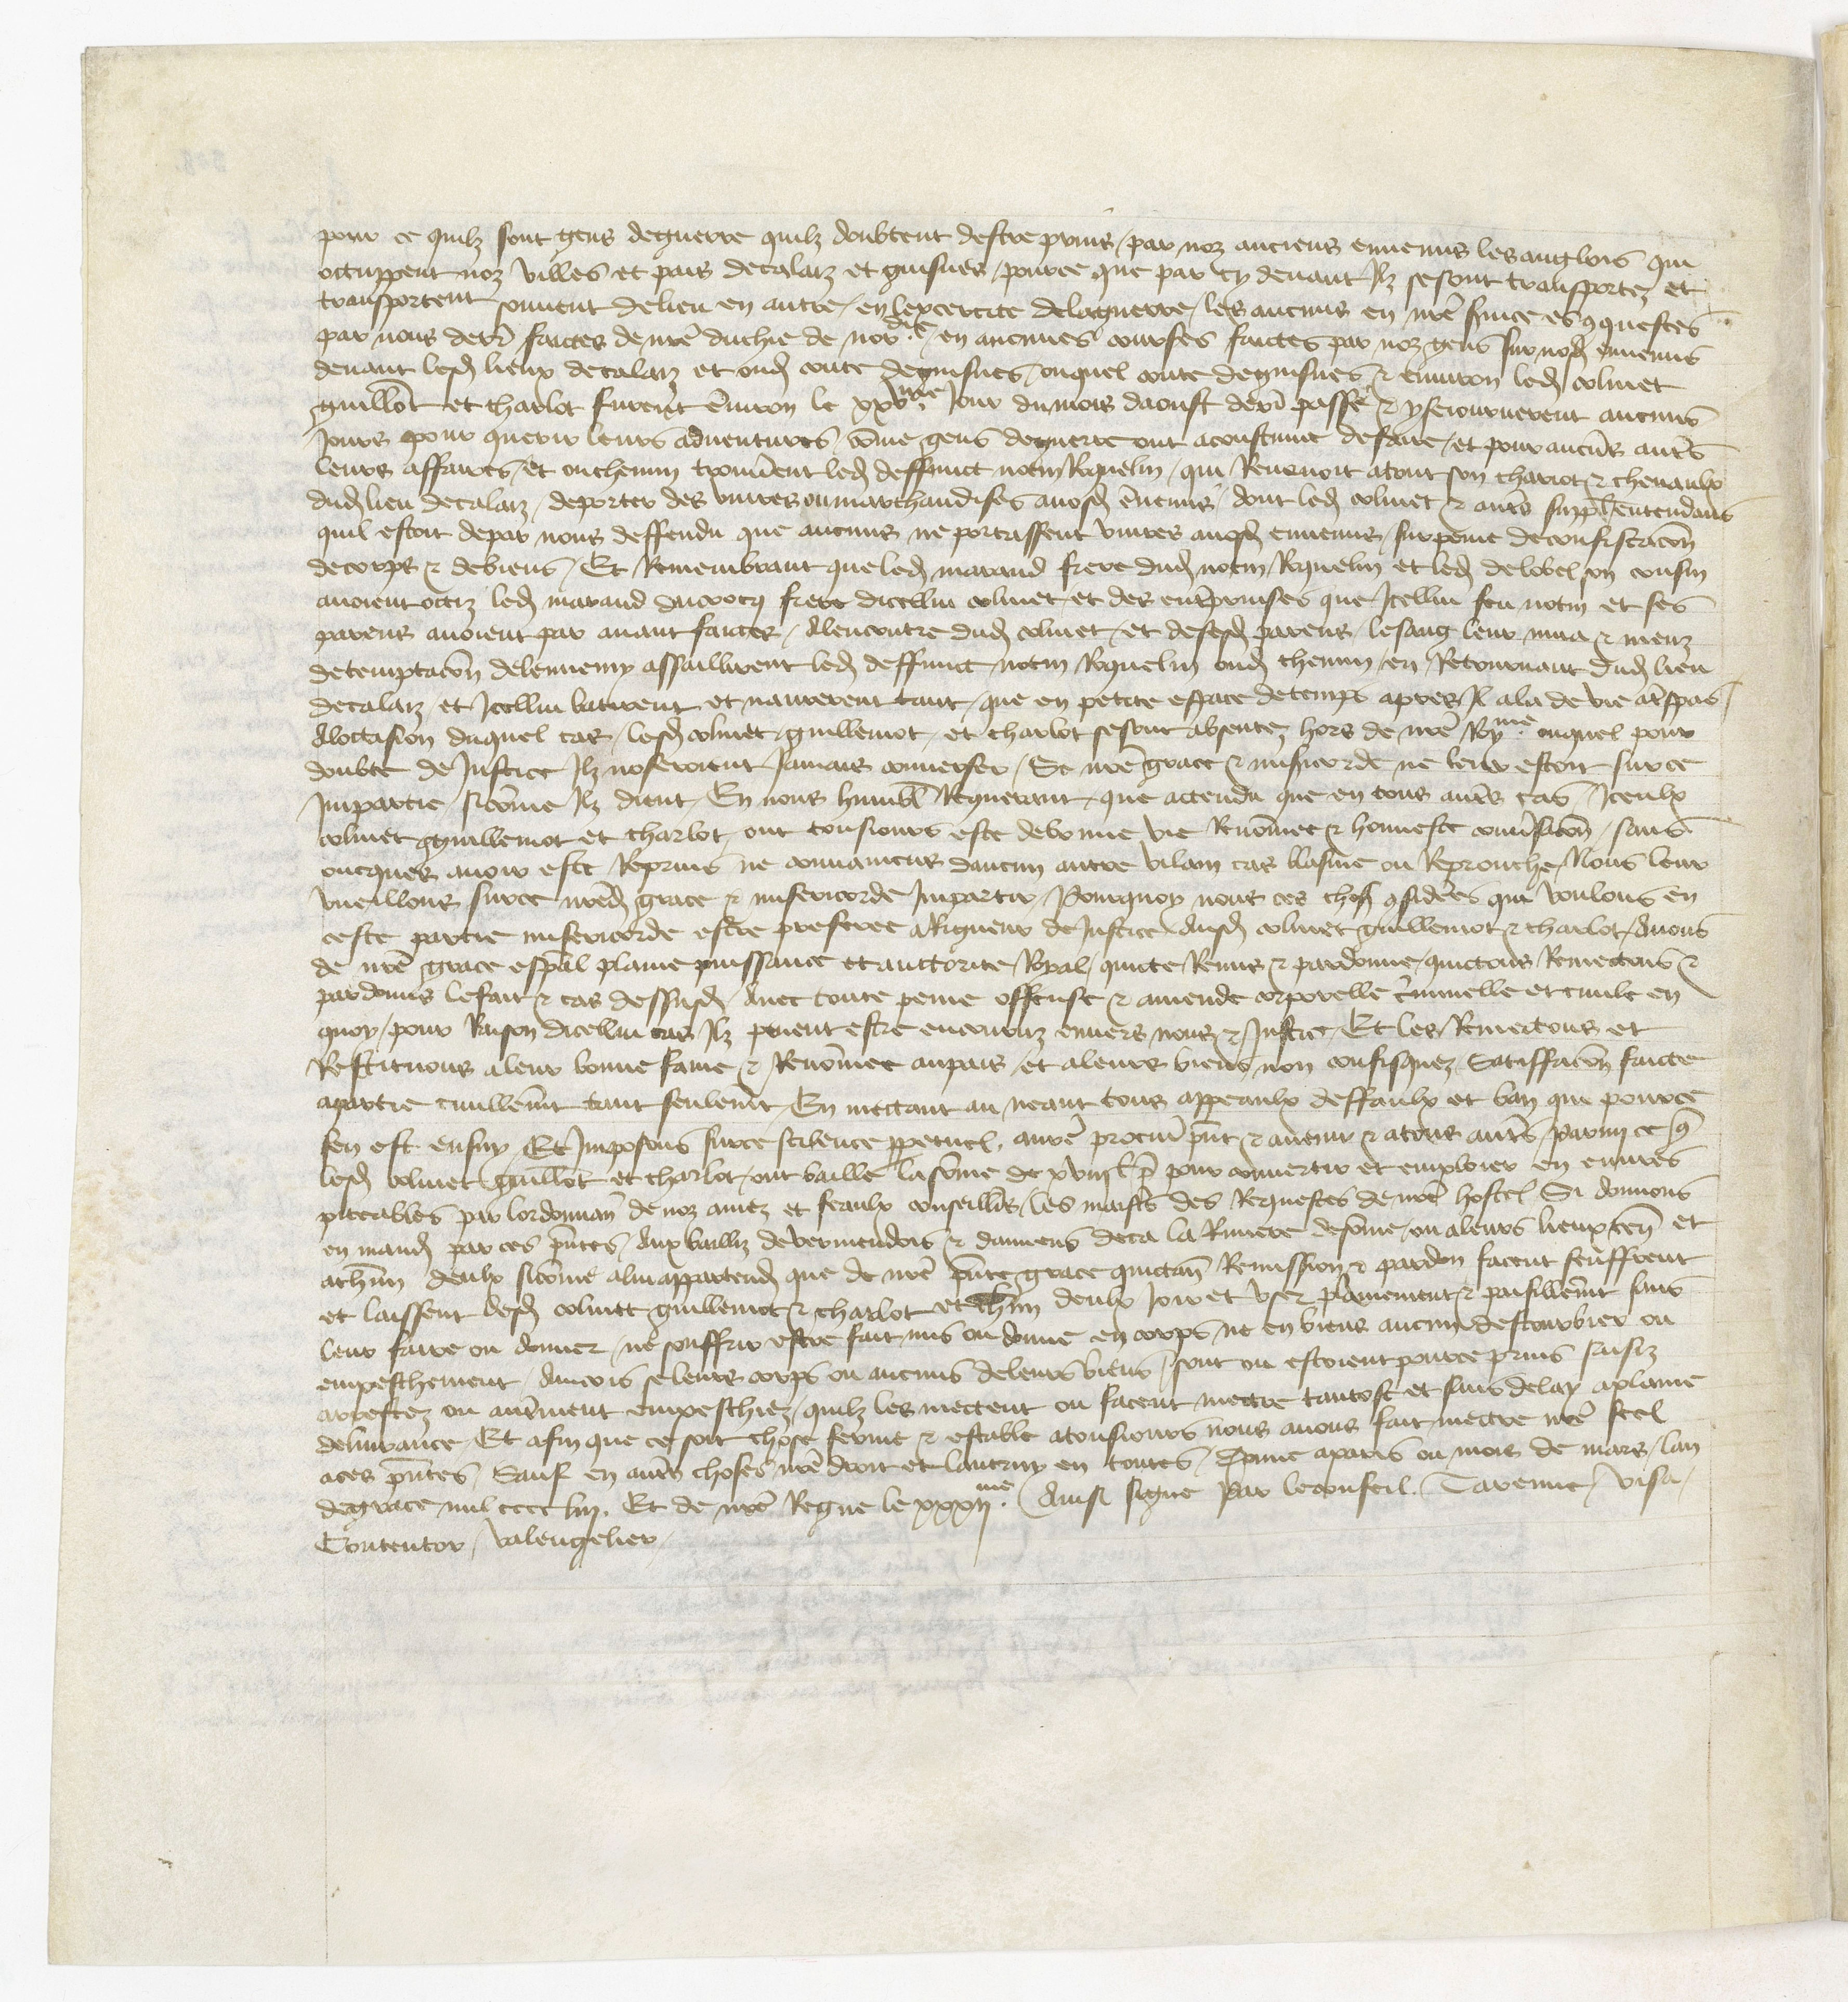 pour ce quilz sont gens deguerre quilz doubtent destre prins / par noz anciens ennemis les anglois qui
occuppent noz villes et pais decalaiz et guisnes / pource que par cy deuant Ilz sesont transportez et
transportent souuent delieu en autre / en lexcercite delaguerre / les aucuns en nre seruice es conquestes
par nous derr faictes de nre duchie de nordie / en aucunes courses faictes par noz gens sur nosd ennemis
deuant lesd lieux decalaiz et oud conte deguisnes / ouquel conte deguisnes & enuiron led colinet
guillot et charlot furent enuiron le xxvme Jour dumois daoust derr passe & yseiournerent aucuns
Jours pour querir leurs aduentures / comme gens deguerre ont acoustume defaire / et pour aucuns autres
leurs affaires / et ouchemin trouuerent led deffunct notin Roquelin / qui Reuenoit atout son chariot & cheuaulx
dud lieu decalaiz / deporter des viures oumarchandises anosd ennemis / dont led colinet & autres suppl entendans
quil estoit depar nous deffendu que aucuns ne portassent viures ausd ennemis / surpeine deconfiscacion
decorps & debiens / Et Remembrant queled marand frere dud notin Roquelin et led delobel son cousin
auoient occiz led marand ducrocq frere dicellui colinet et des entreprinses que Jcellui feu notin et ses
parens auoient par auant faictes / Alencontre dud colinet / et desesd parens / lesang leur mua & meuz
detemptacion delennemy assaillirent led deffunct notin Roquelin oud chemin / en Retournant dud lieu
decalaiz et Jcellui batirent et naurerent tant / que en petite espace detemps apres Jl ala de vie a trespas /
Aloccasion duquel cas / lesd colinet / guillemot / et charlot sesont absentez hors de nre Royme ouquel pour
doubte de Justice Jlz noseroient Jamais conuerser / Se nre grace & misericorde ne leur estoit surce
Jmpartie / sicomme Jlz dient / En nous humbl Requerant / que attendu que en tous autres cas / Jceulx
colinet guillemot et charlot / ont tousiours este debonne vie Renommee & honneste conuersacion / sans
oncques auoir este Reprins ne conuaincus daucun autre vilain cas blasme ou Reprouche / Nous leur
vueillons surce nred grace & misericorde Jmpartir / Pourquoy nous ces choses considerees qui voulons en
ceste partie misericorde estre preferee aRigueur de Justice Ausd colinet guillemot & charlot / Auons
de nre grace espal plaine puissance et auctorite Royal / quicte Remis & pardonne / quictons Remectons &
pardonnons lefait & cas dessusd / Auec toute peine offense & amende corporelle criminelle et ciuile en
quoy / pour Raison dicellui cas Jlz peuent estre encouruz enuers nous & Justice / Et les Remectons et
Restituons aleur bonne fame & Renommee aupais / et aleurs biens non confisquez / Satiffacion faicte
apartie ciuillement tant seulement / En mectant au neant tous appeaulx deffaulx et ban qui pource
sen est ensuy / Et Jmposons surce scilence perpetuel / anre procur pnt & auenir & atous autres / Parmy ce que
lesd colinet guillot et charlot / ont baille la somme de xviij l p pour conuertir et emploier en euures
piteables par lordonnan de noz amez et feaulx conseillrs / les maistres des Requestes denre hostel Si donnons
en mand par ces pntes / Aux bailliz devermendois & damiens deca la Riuiere desomme / ou aleurs lieuxten et
achun deulx sicomme aluiappartend que de nre pnte grace quictan Remission & pardon facent seuffrent
et laissent lesd colinet guillemot & charlot et chun deulx Joir et vser plainement & paisiblement sans
leur faire ou donner / ne souffrir estre fait mis ou donne en corps ne en biens aucun destourbier ou
empeschement / Aincois seleurs corps ou aucuns deleursbiens / sont ou estoient pource prins saisiz
arrestez ou autrement empeschiez / quilz les mectent ou facent mectre tantost et sans delay aplaine
deliurance / Et afin que ce soit chose ferme & estable atousiours nous auons fait mectre nre seel
aces pntes / Sauf en autres choses nre droit et lautruy en toutes / Donne aparis ou mois de mars / lan
degrace mil cccc liij. Et de nre Regne le xxxijme. Ainsi signe Par leconseil. Tarenne / Visa /
Contentor / Valengelier /